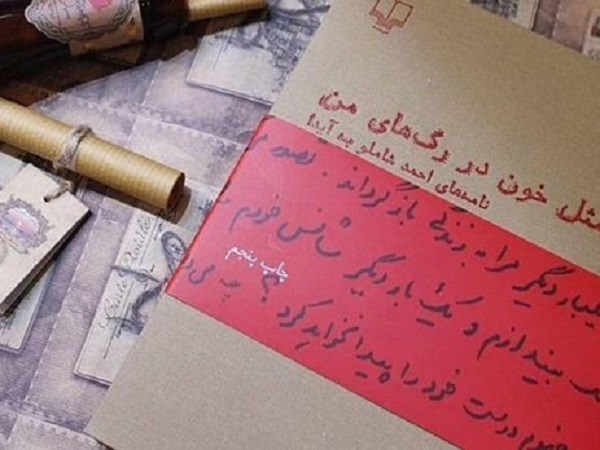 مثل خون در رگ‌های من
نامه‌های احمد شاملو به آیدا
یکبار دیگر مرا به زندگی بازگرداند. تصور
بیندازم و یک بار دیگر شانس خودم
چاپ پنجم
خود را پیدا نخواهد کرد؟